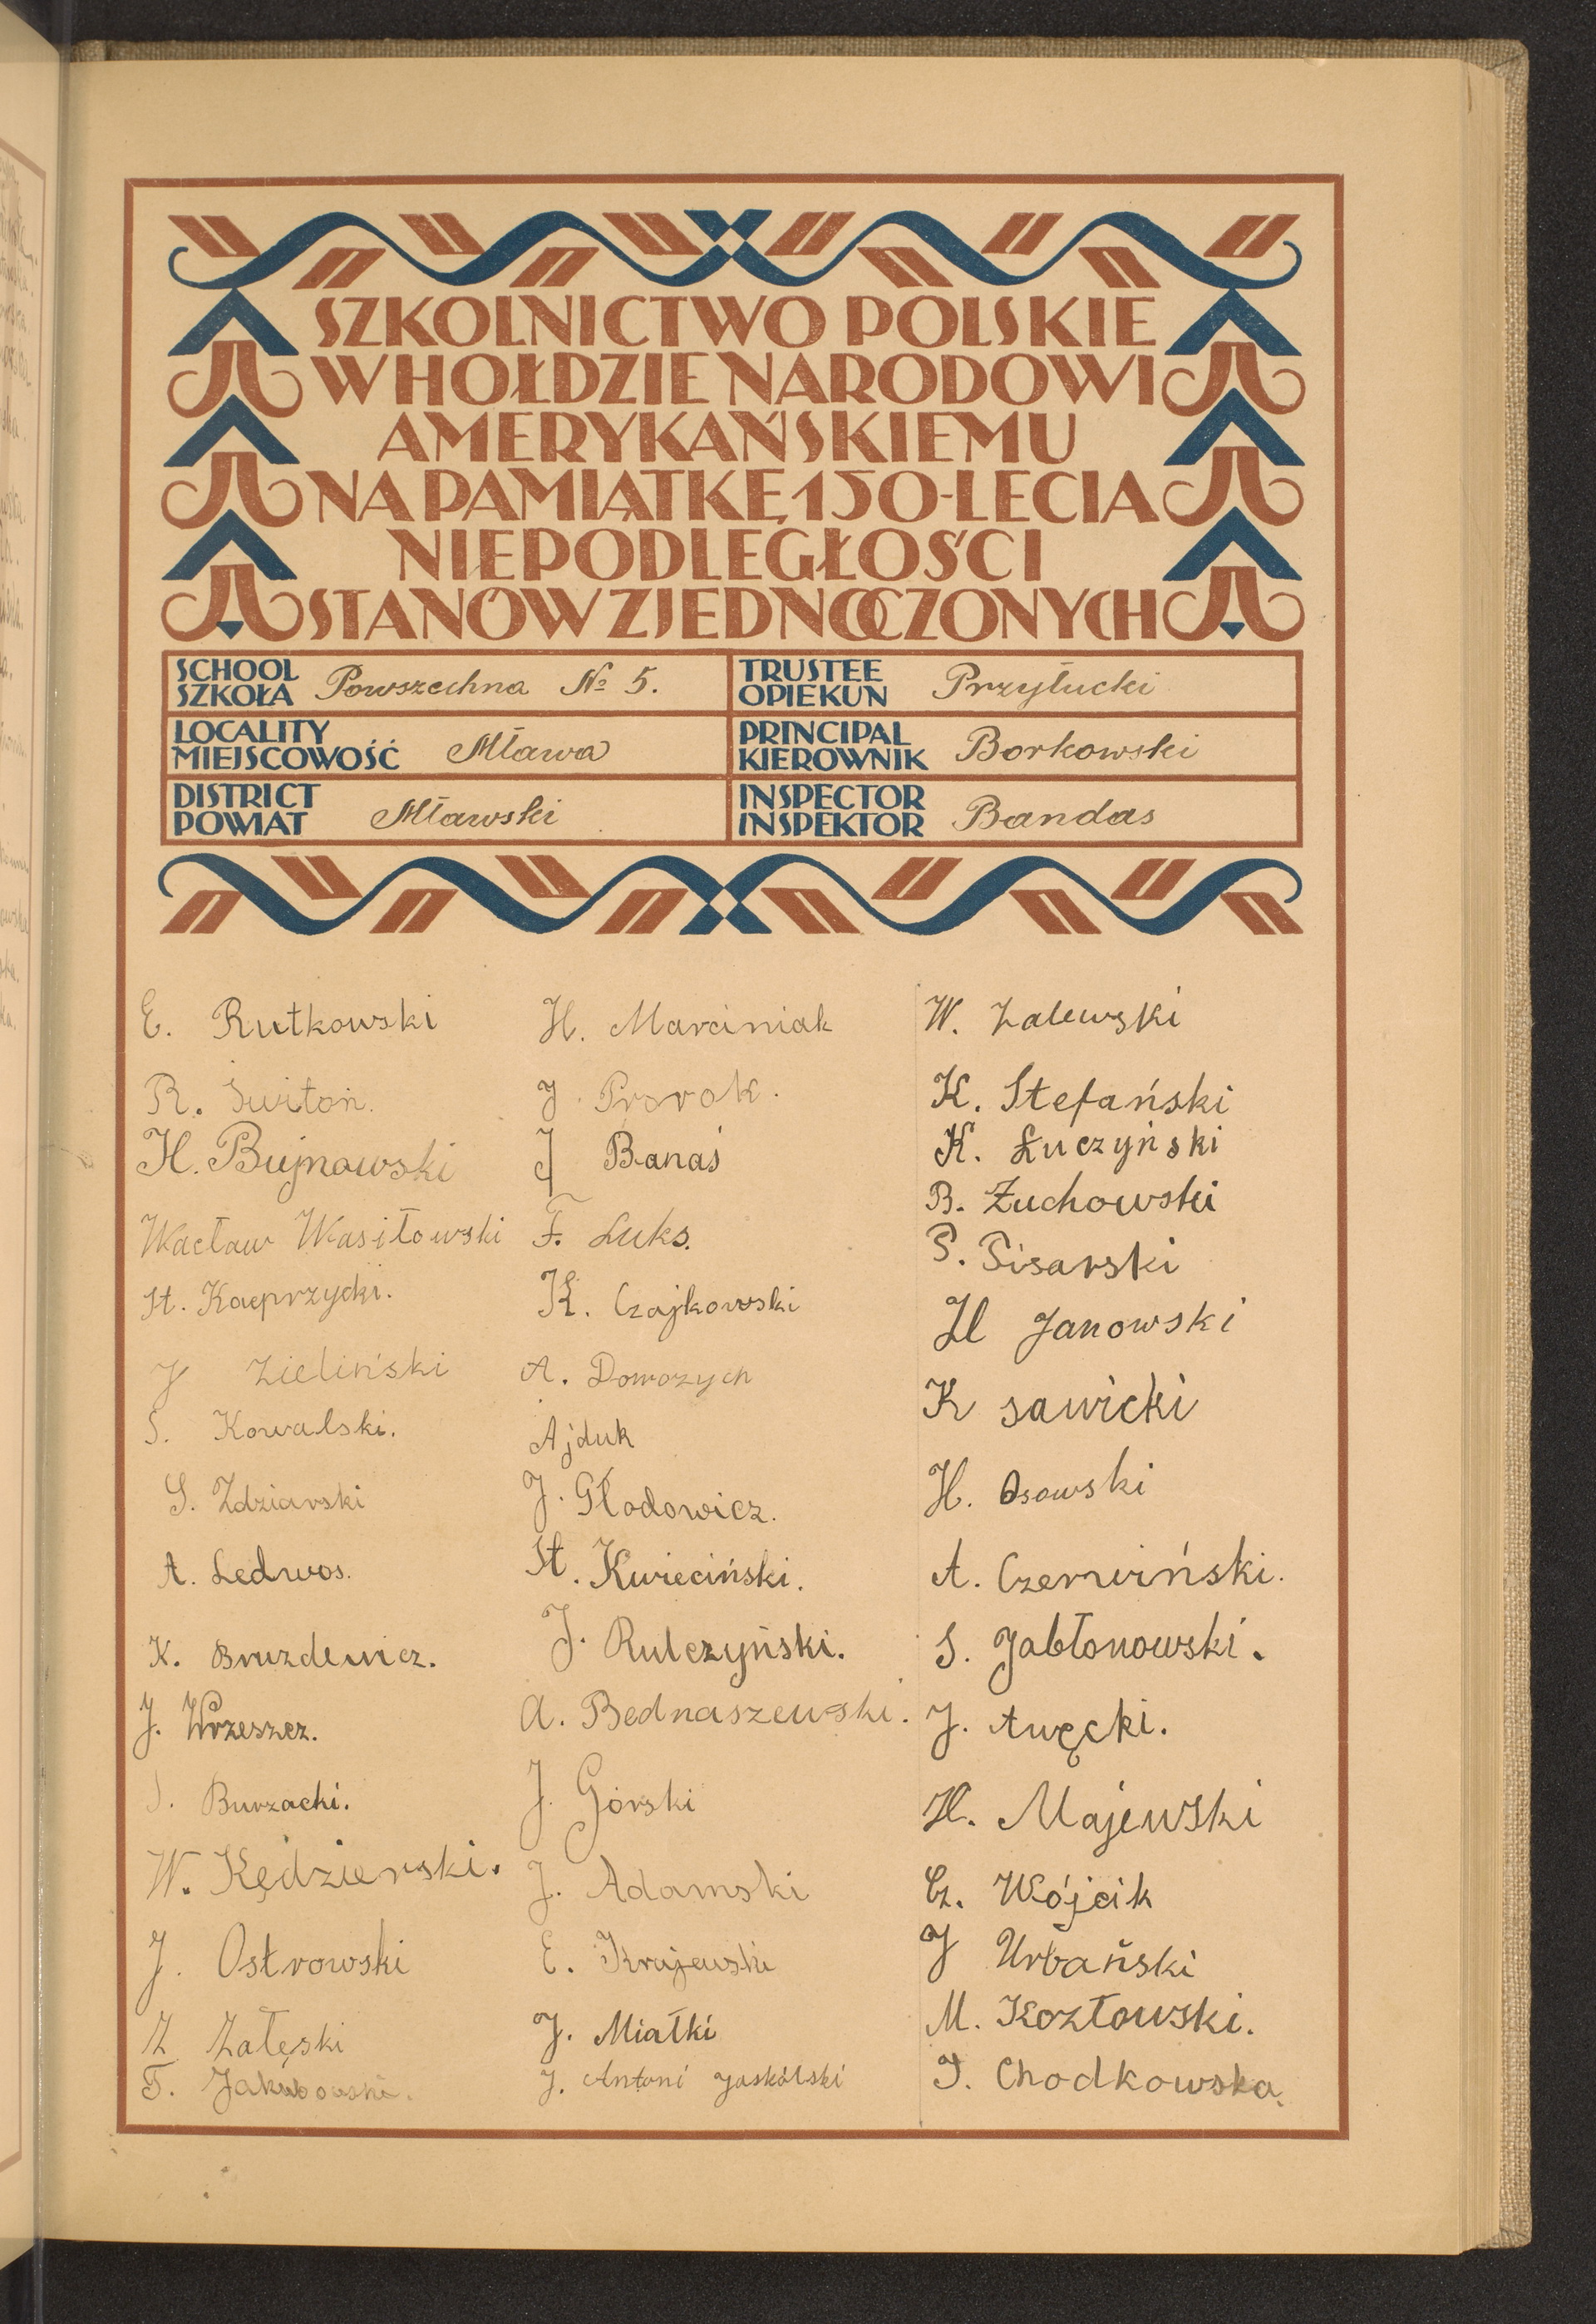 SZKOLNICTWO POLSKIE
W HOŁDZIE NARODOWI
AMERYKAŃSKIEMU
NA PAMIĄTKĘ 150-LECIA
NIEPODLEGŁOŚCI
STANÓW ZJEDNOCZONYCH
SCHOOL
SZKOŁA Powszechna № 5.
TRUSTEE
OPIEKUN Przyłucki
LOCALITY
MIEJSCOWOŚĆ Mława
PRINCIPAL
KIEROWNIK Borkowski
DISTRICT
POWIAT Mławski
INSPECTOR
INSPEKTOR Bandas
E. Rutkowski
R. Świtoń.
H. Bujnowski
Wacław Wasiłowski
St. Kacprzycki.
J Zieliński
S. Kowalski.
S. Zdziarski
A. Ledwos.
K. Bruzdewicz.
J. Wrzeszcz.
Burzacki.
W. Kędzierski.
J. Ostrowski
Z Załęski
T. Jakubowski.
H. Marciniak
J. Prorok.
J Banaś
F. Luks.
K. Czajkowski
A. Dowozych
Ajduk
J. Głodowicz.
St. Kwieciński.
J. Rulczyński.
A. Bednaszewski.
J. Górski
J. Adamski
E. Krajewski
J. Miałki
J. Antoni Jaskólski
W. Zalewski
K. Stefański
K. Łuczyński
B. Żuchowski
P. Pisarski
H Janowski
K sawicki
H. Osowski
A. Czerwiński.
S. Jabłonowski.
J. Awęcki.
H. Majewski
Cz. Wójcik
J Urbański
M. Kozłowski.
J. Chodkowska